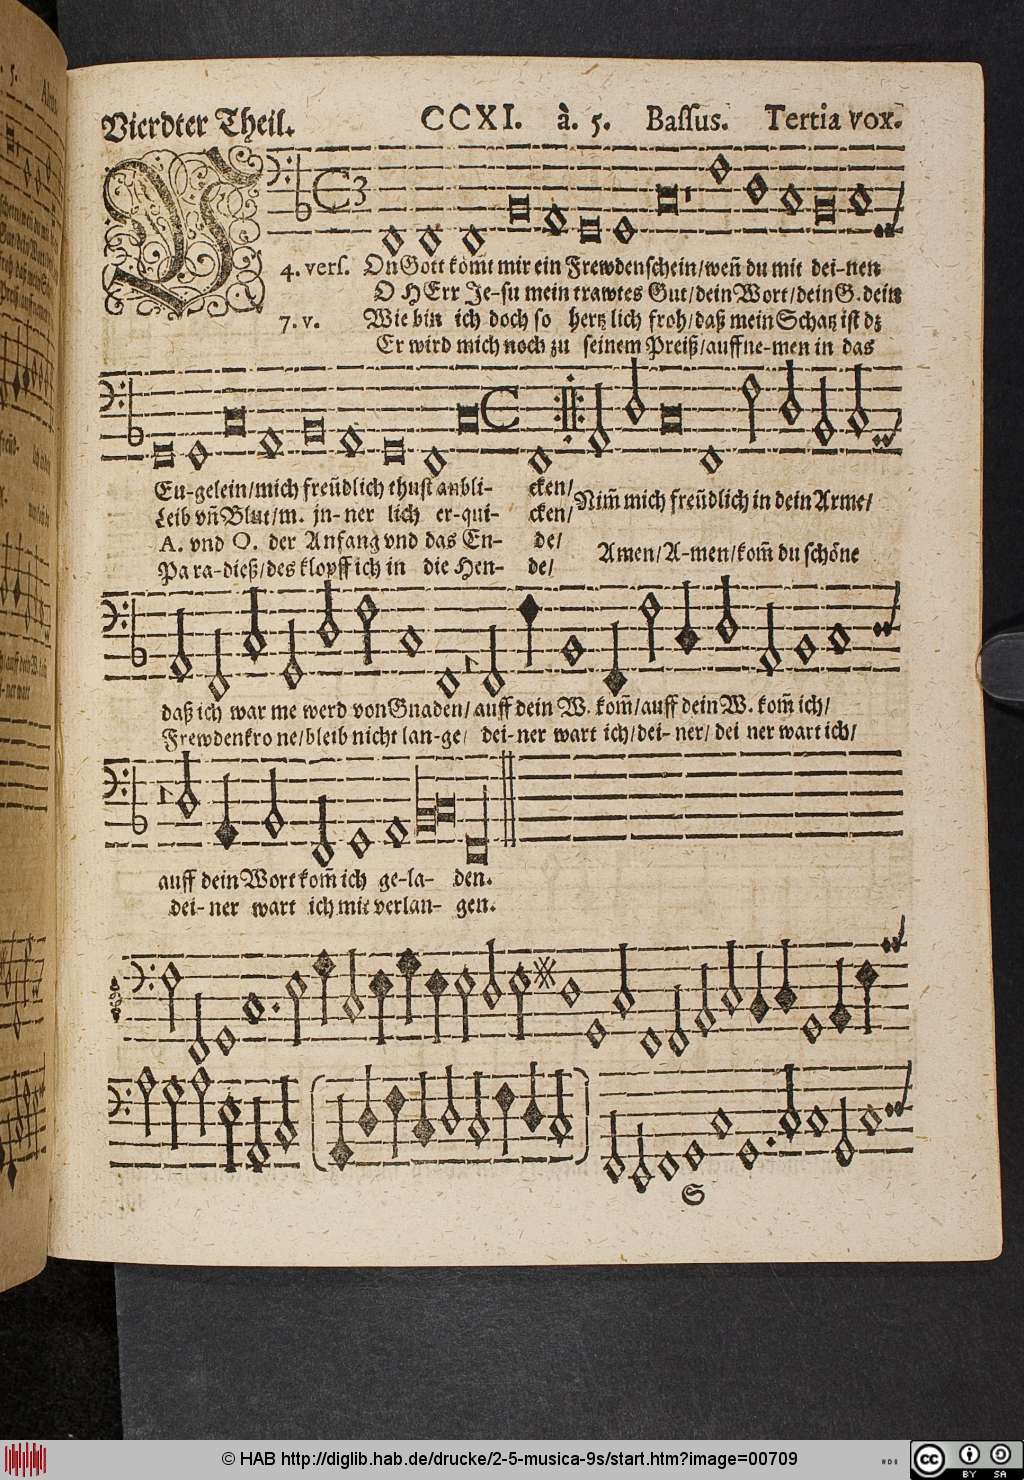 Vierdter Theil. CCXI. à. 5. Baſſus. Tertia vox.
4. verſ. VOn Gott köm̃t mir ein Frewdenſchein/ weñ du mit dei-nen
O HErr Je-ſu mein trawtes Gut/ dein Wort/ dein G. dein
7. v. Wie bin ich doch ſo hertz lich froh/ daß mein Schatz iſt dz
Er wird mich noch zu ſeinem Preiß/ auffne-men in das
Eu-gelein/ mich freũdlich thuſt anbli- cken/ Nim̃ mich freũdlich in dein Arme/
Leib vñ Blut/ m. jn-ner lich er-qui- cken/
A. vnd O. der Anfang vnd das En- de/ Amen/ A-men/ kom̃ du ſchöne
Pa ra-dieß/ des klopff ich in die Hen- de/
daß ich war me werd von Gnaden/ auff dein W. kom̃/ auff dein W. kom̃ ich/
Frewdenkro ne/ bleib nicht lan-ge/ dei-ner wart ich/ dei-ner/ dei ner wart ich/
auff dein Wort kom̃ ich ge-la- den.
dei-ner wart ich mit verlan- gen.
S
© HAB http://diglib.hab.de/drucke/2-5-musica-9s/start.htm?image=00709
cc BY SA